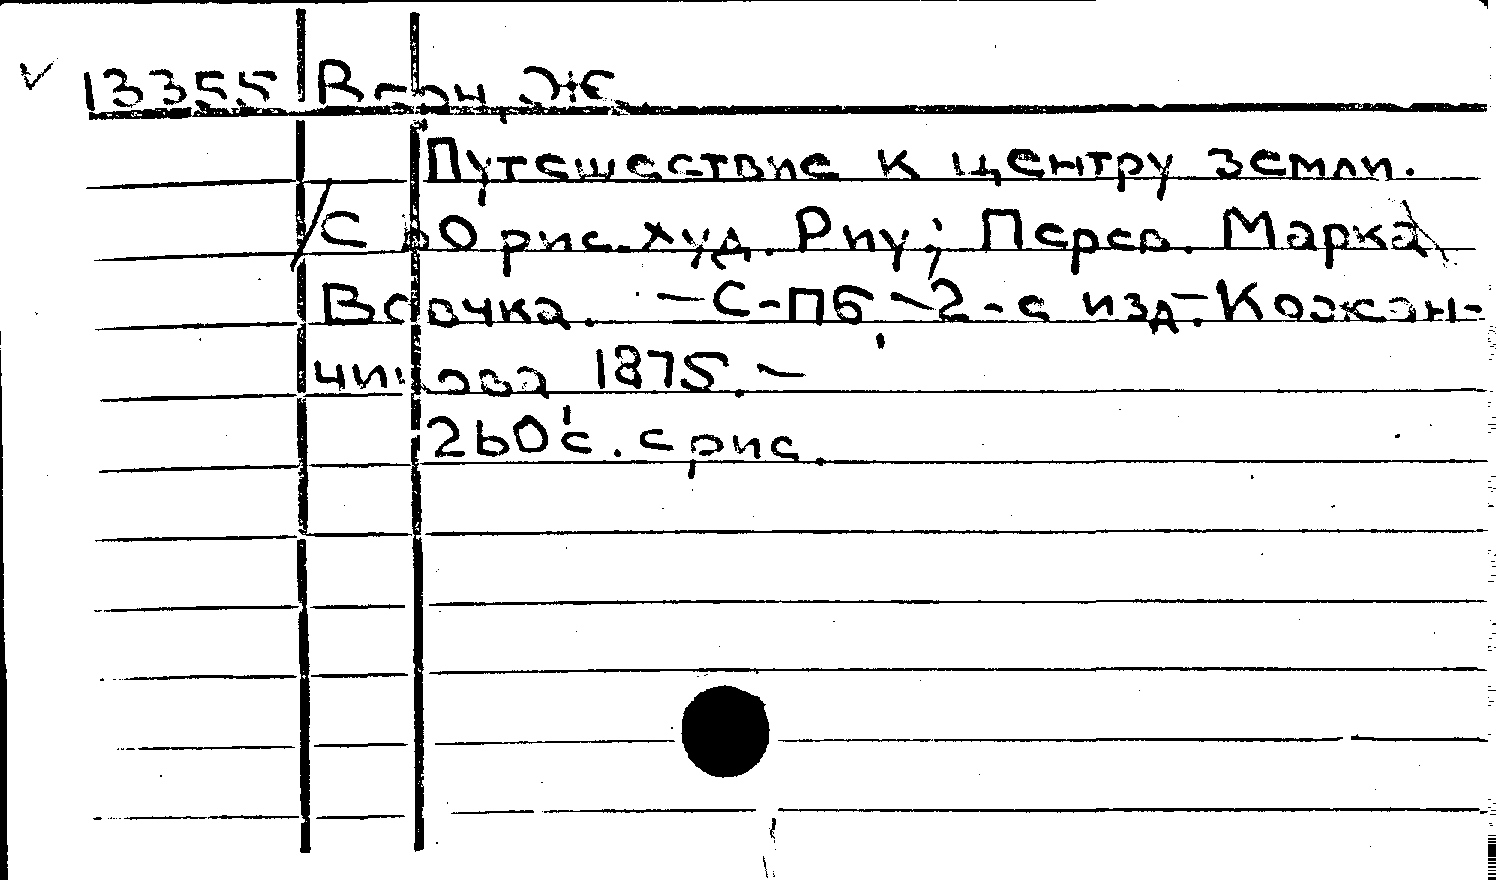 13355 Верн, Ж.
Путешествие к центру земли.
/С 60 рис. худ. Риу; Перев. Марка/
Вовчка. – С-Пб, – 2-е изд. – Кожан-
чикова 1875. –
260 с. с рис.